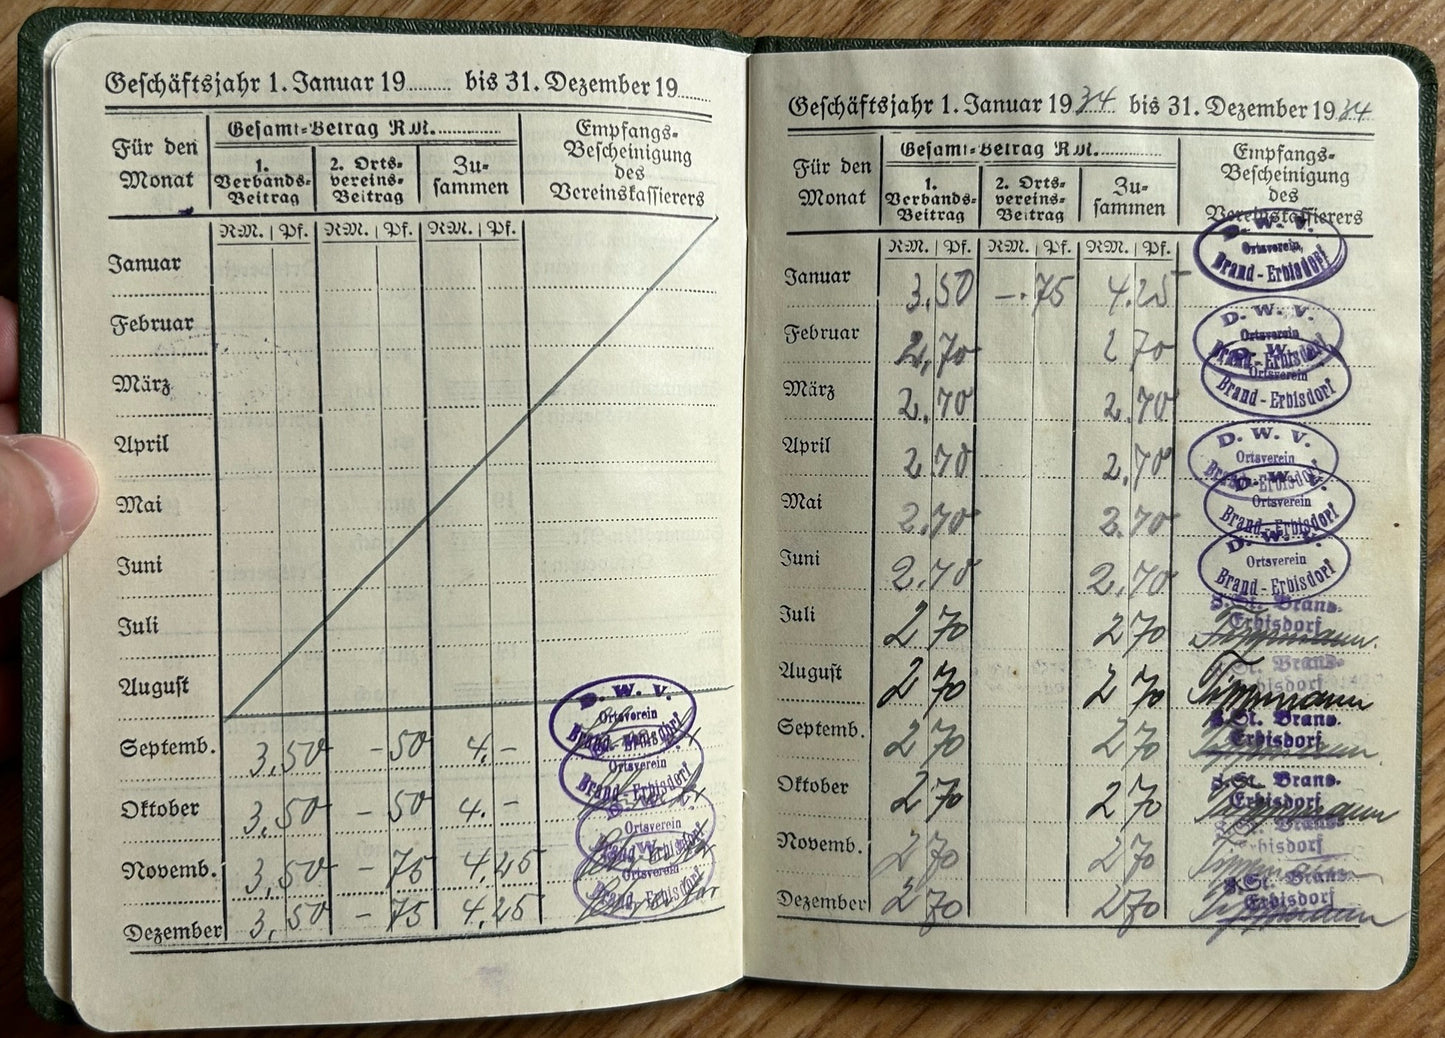 Geschäftsjahr 1. Januar 19........ bis 31. Dezember 19......
Für den Monat
Gesamt-Betrag R.M.............
1. Verbands-Beitrag
2. Ortsvereins-Beitrag
Zusammen
Empfangs-Bescheinigung des Vereinskassierers
R.M. | Pf. R.M. | Pf. R.M. | Pf.
Januar
Februar
März
April
Mai
Juni
Juli
August
Septemb. 3,50 - 50 4.-
Oktober 3,50 - 50 4.-
Novemb. 3,50 - 75 4,25
Dezember 3,50 - 75 4,25
D. W. V.
Ortsverein
Brand-Erbisdorf
Ortsverein
Brand-Erbisdorf
Ortsverein
Brand-Erbisdorf
Ortsverein
Brand-Erbisdorf
Geschäftsjahr 1. Januar 1934 bis 31. Dezember 1934
Für den Monat
Gesamt-Betrag R.M.............
1. Verbands-Beitrag
2. Ortsvereins-Beitrag
Zusammen
Empfangs-Bescheinigung des Vereinskassierers
R.M. | Pf. R.M. | Pf. R.M. | Pf.
Januar 3.50 -.75 4.25
Februar 2,70 2 70
März 2.70 2.70
April 2.70 2.70
Mai 2.70 2.70
Juni 2.70 2.70
Juli 2 70 2 70
August 2 70 2 70
Septemb. 2 70 2 70
Oktober 2 70 2 70
Novemb. 2 70 2 70
Dezember 2 70 2 70
D. W. V.
Ortsverein
Brand-Erbisdorf
D. W. V.
Ortsverein
Brand-Erbisdorf
D. W. V.
Ortsverein
Brand-Erbisdorf
D. W. V.
Ortsverein
Brand-Erbisdorf
D. W. V.
Ortsverein
Brand-Erbisdorf
D. W. V.
Ortsverein
Brand-Erbisdorf
St. Brand-
Erbisdorf
St. Brand-
Erbisdorf
St. Brand-
Erbisdorf
St. Brand-
Erbisdorf
St. Brand-
Erbisdorf
St. Brand-
Erbisdorf